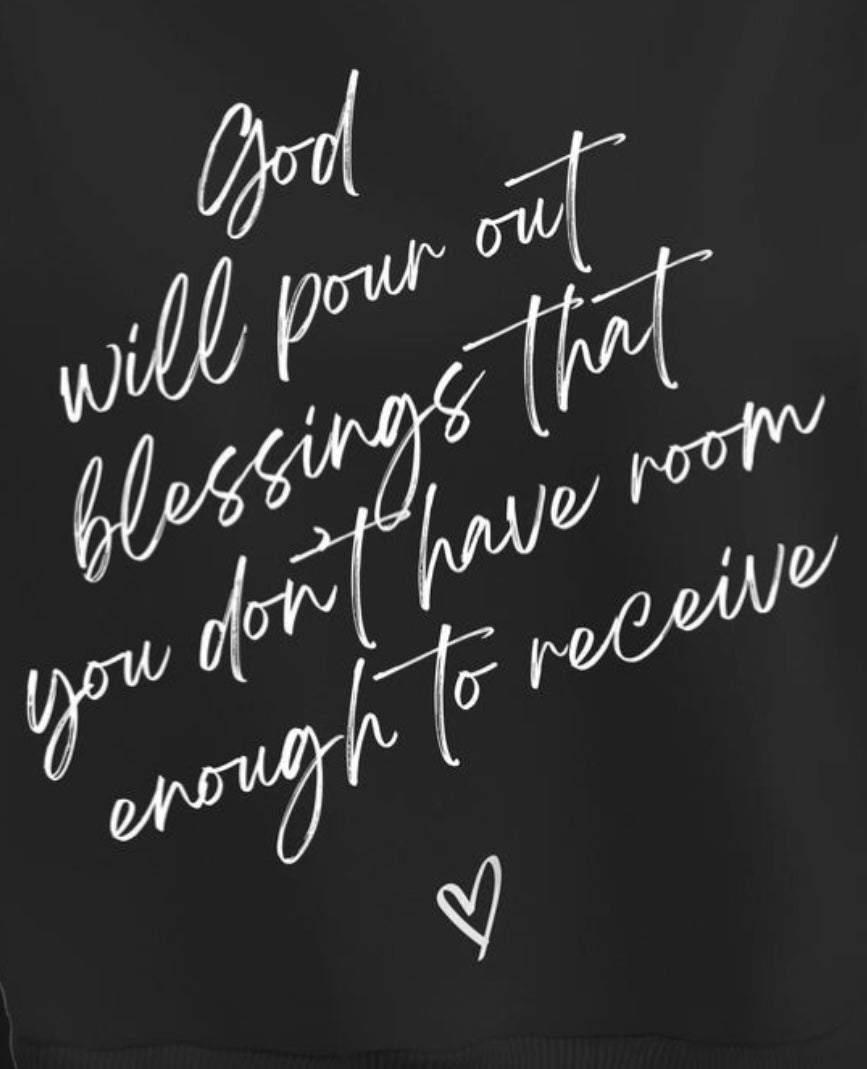 God
will pour out
blessings that
you don't have room
enough to receive